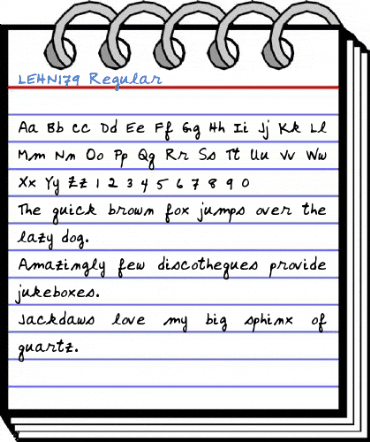 LEHN179 Regular
Aa Bb Cc Dd Ee Ff Gg Hh Ii Jj Kk Ll
Mm Nn Oo Pp Qq Rr Ss Tt Uu Vv Ww
Xx Yy Zz 1 2 3 4 5 6 7 8 9 0
The quick brown fox jumps over the
lazy dog.
Amazingly few discotheques provide
jukeboxes.
Jackdaws love my big sphinx of
quartz.